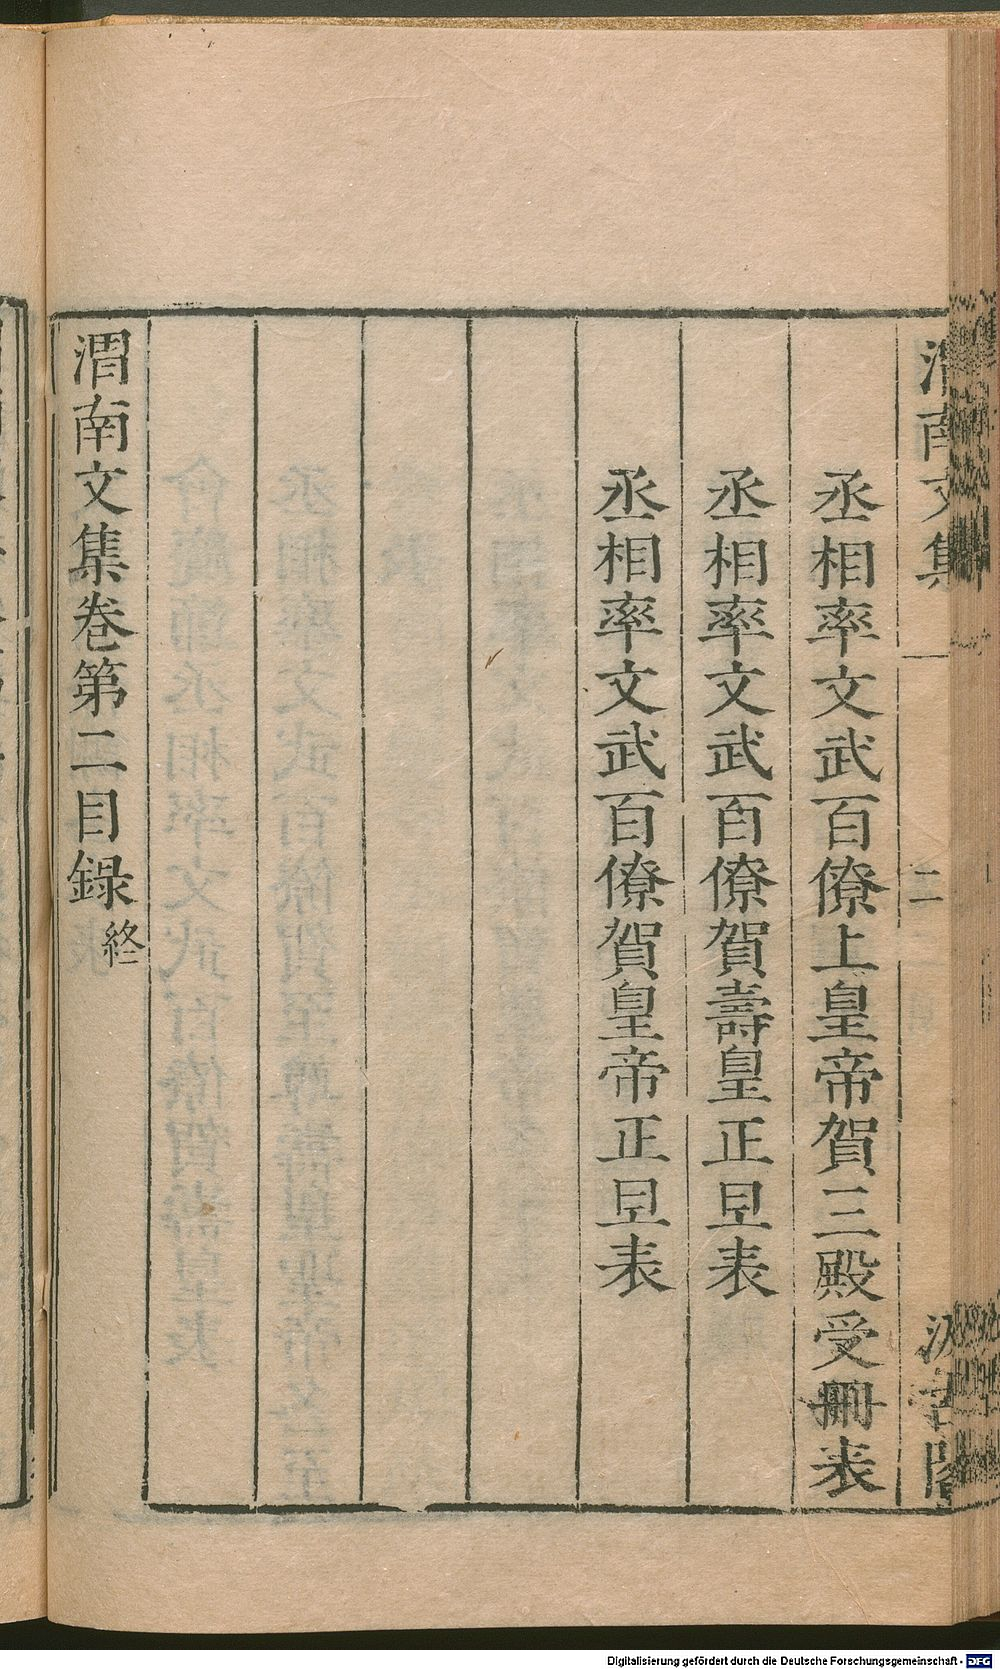 渭南文集
二
汲古閣
丞相率文武百僚上皇帝賀三殿受冊表
丞相率文武百僚賀壽皇正旦表
丞相率文武百僚賀皇帝正旦表
渭南文集卷第二目錄終
Digitalisierung gefördert durch die Deutsche Forschungsgemeinschaft - DFG